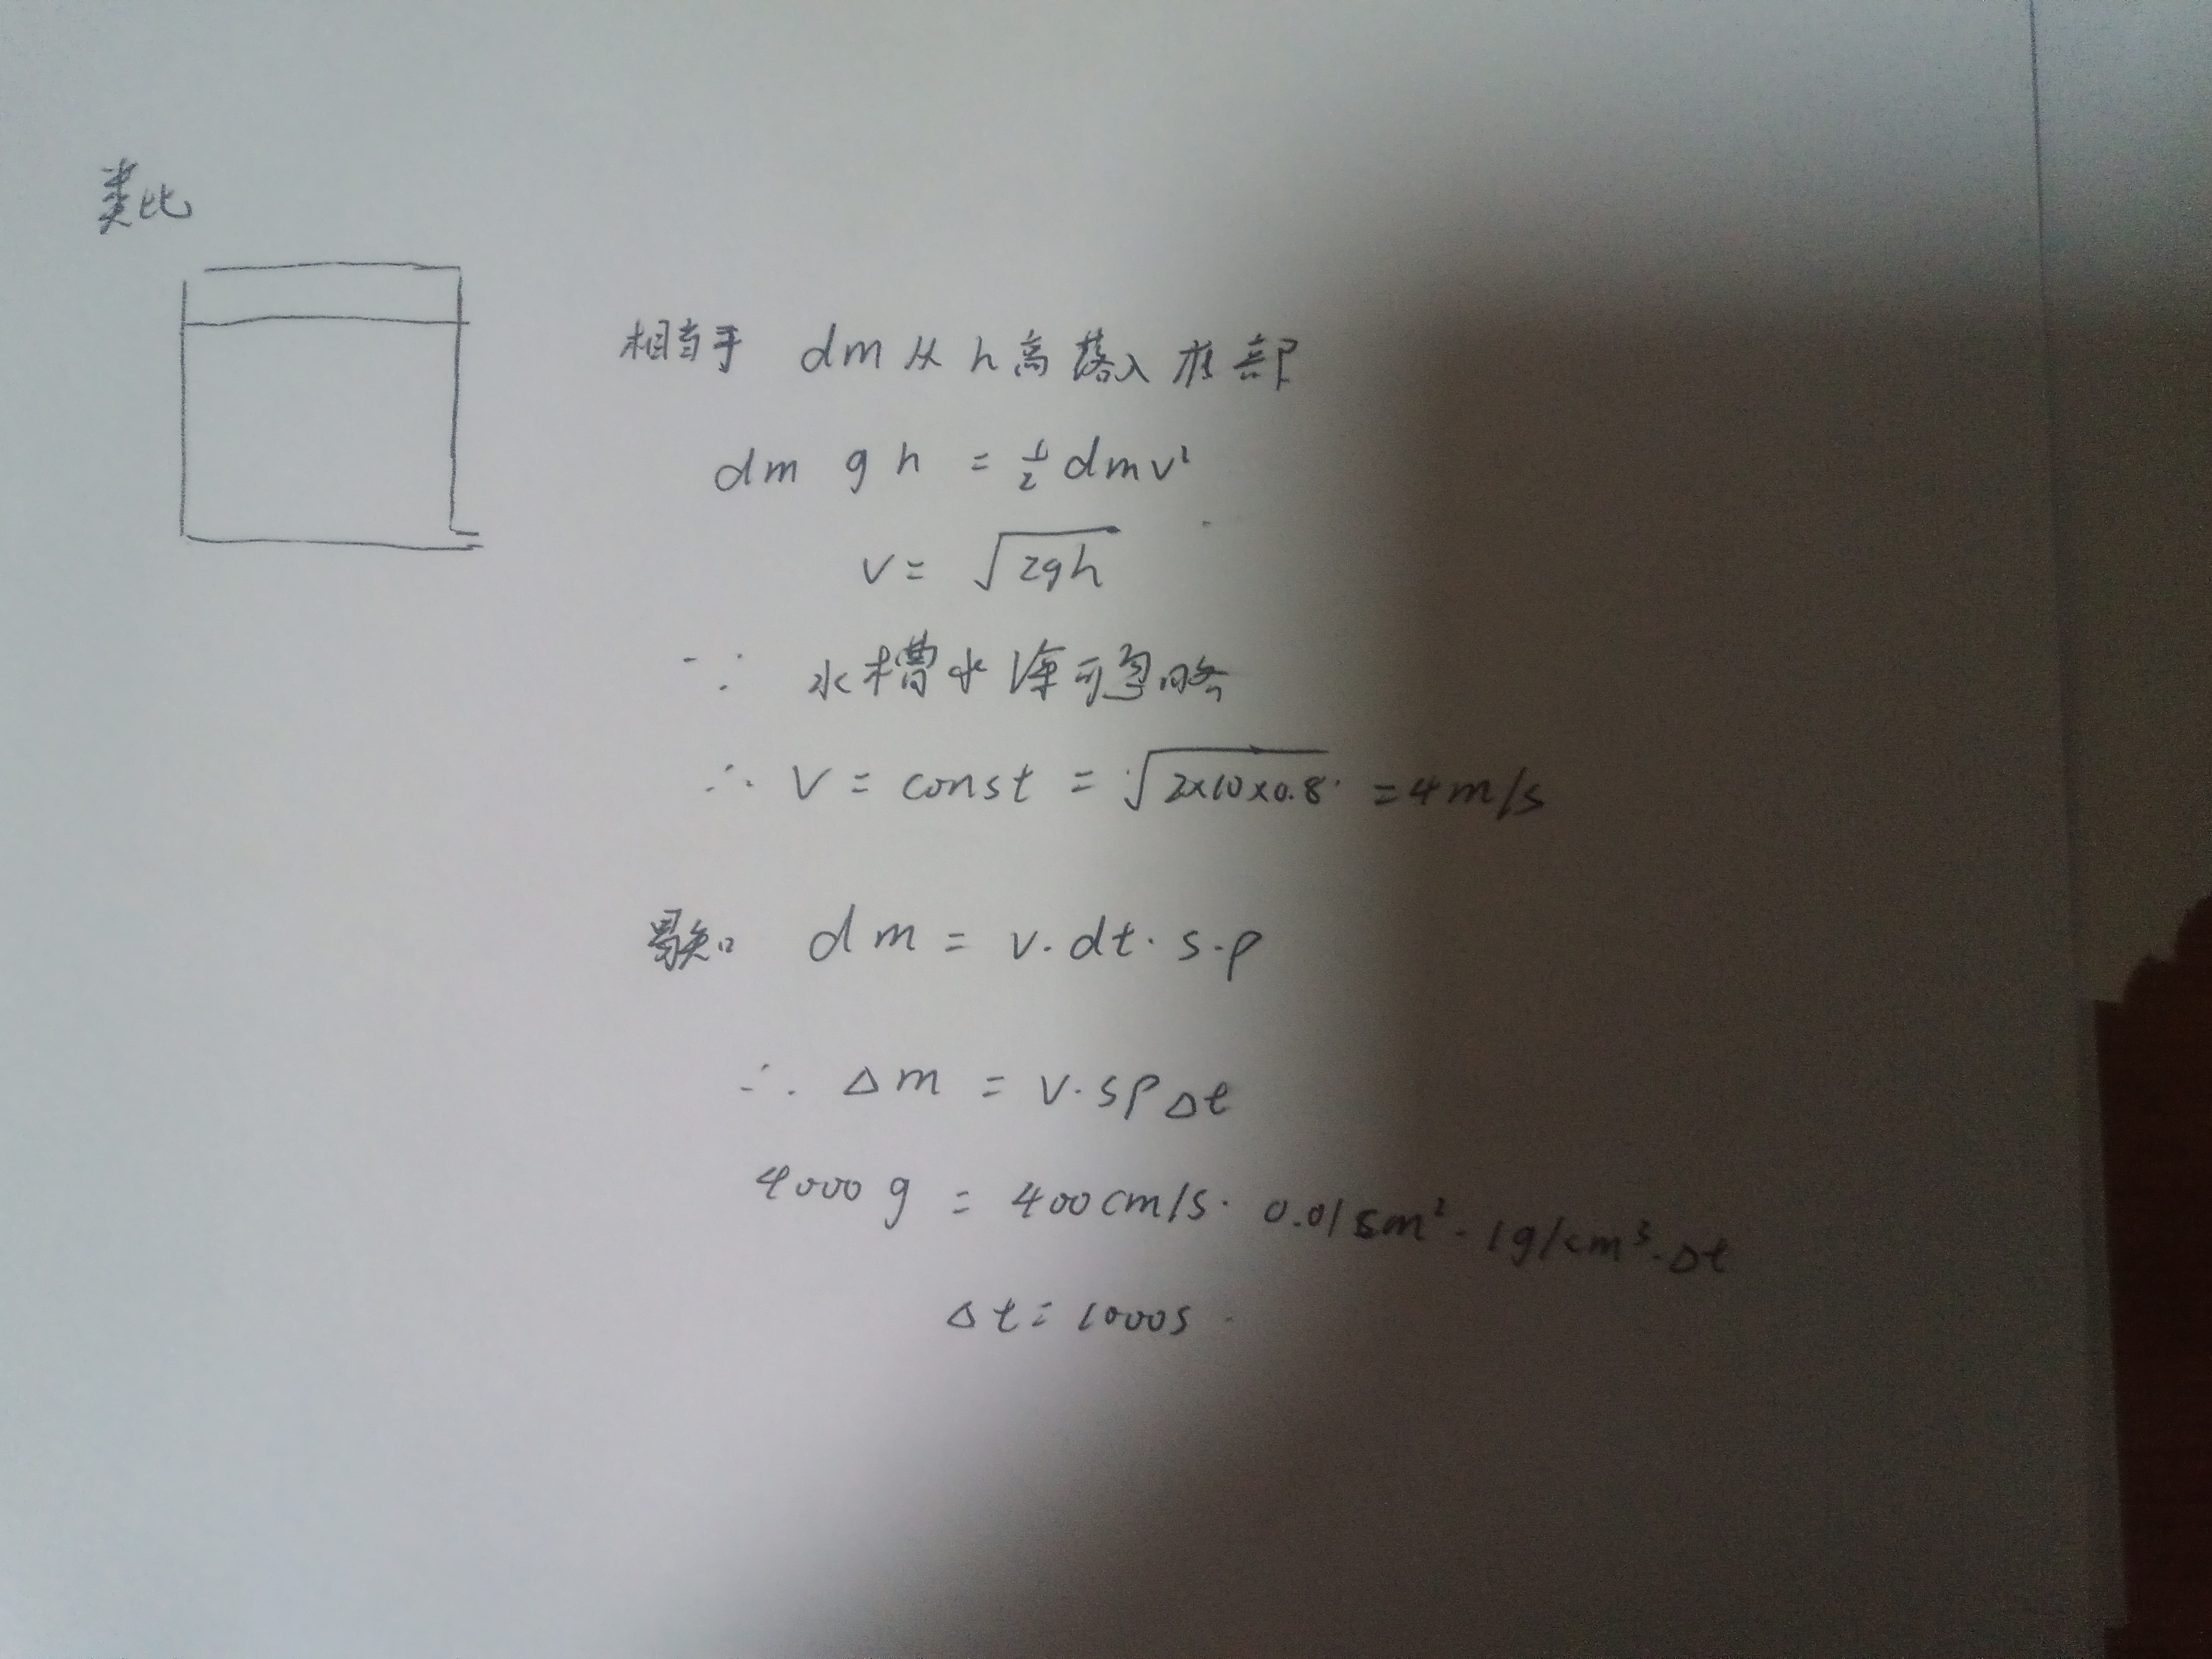 类比
相当于 dm 从 h 高落入底部
dm g h = ½ dmv²
v = √2gh
∵ 水槽水深可忽略
∴ V = const = √2×10×0.8 = 4m/s
易知 dm = v·dt·s·ρ
∴ Δm = v·sρΔt
4000g = 400cm/s · 0.01cm² · 1g/cm³·Δt
Δt = 1000s